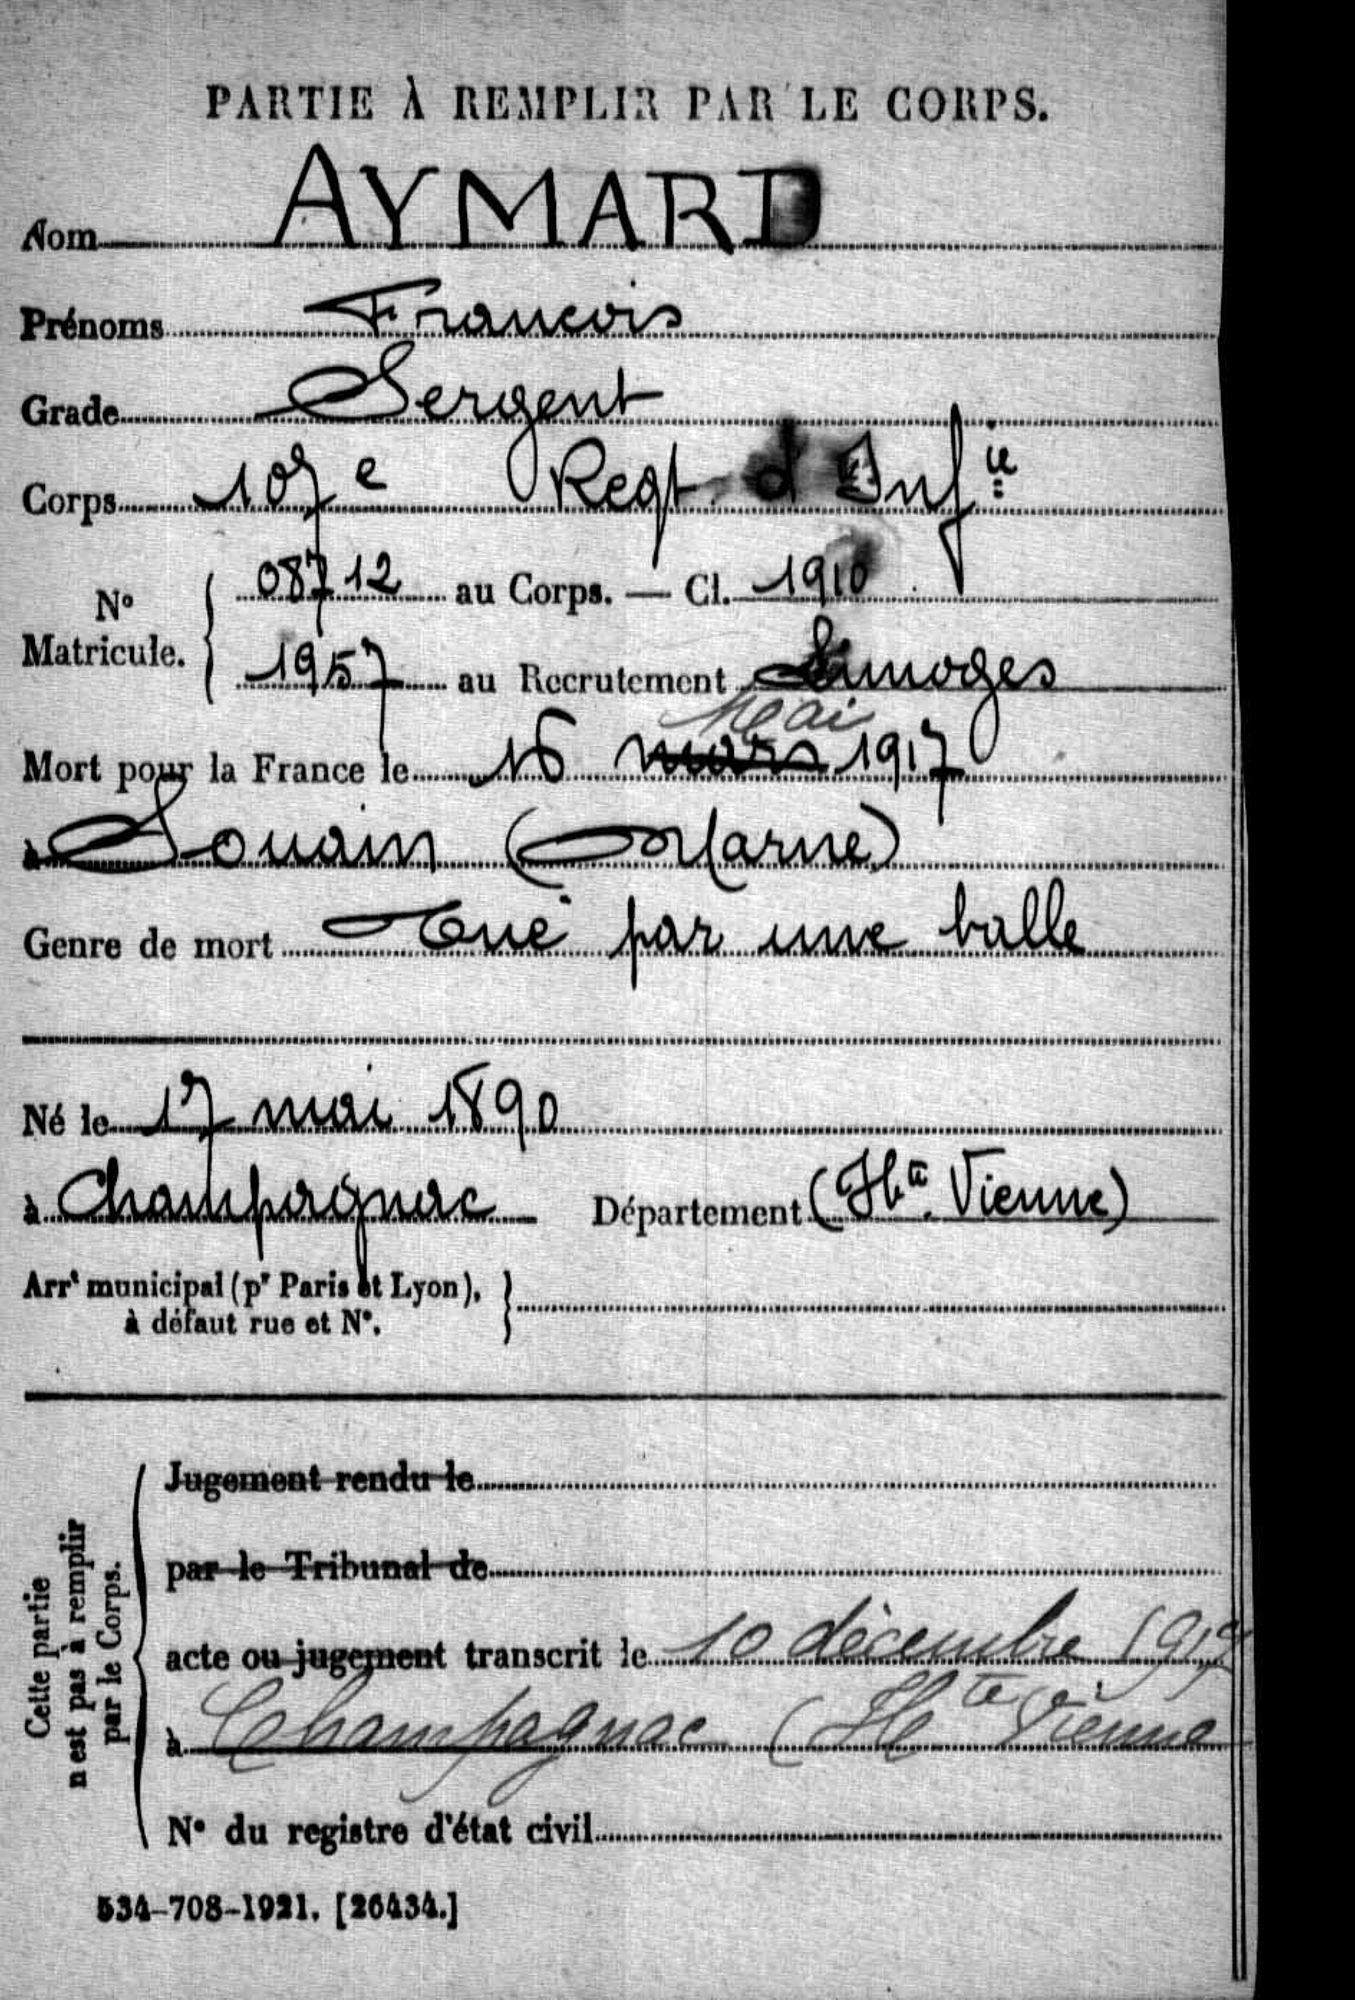 PARTIE À REMPLIR PAR LE CORPS.
Nom AYMARD
Prénoms Francois
Grade Sergent
Corps 107e Regt d'Infie
No Matricule. 08712 au Corps. — Cl. 1910
1957 au Recrutement Limoges
Mai
Mort pour la France le 16 mars 1917
à Souain (Marne)
Genre de mort Tué par une balle
Né le 17 mai 1890
à Champagnac Département (Hte Vienne)
Arrt municipal (pr Paris et Lyon),
à défaut rue et No.
Cette partie n'est pas à remplir par le Corps.
Jugement rendu le
par le Tribunal de
acte ou jugement transcrit le 10 décembre 1917
à Champagnac (Hte Vienne
No du registre d'état civil
534-708-1921. [26434.]